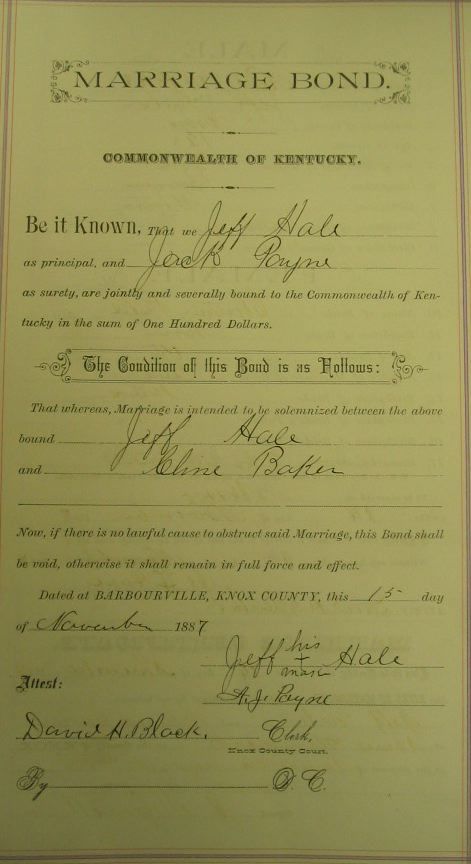 MARRIAGE BOND.
COMMONWEALTH OF KENTUCKY.
Be it Known, That we Jeff Hale
as principal, and Jack Payne
as surety, are jointly and severally bound to the Commonwealth of Ken-
tucky in the sum of One Hundred Dollars.
The Condition of this Bond is as Follows:
That whereas, Marriage is intended to be solemnized between the above
bound Jeff Hale
and Cline Baker
Now, if there is no lawful cause to obstruct said Marriage, this Bond shall
be void, otherwise it shall remain in full force and effect.
Dated at BARBOURVILLE, KNOX COUNTY, this 15 day
of November 1887
Jeff his + mark Hale
Attest:
A. J. Payne
David H. Black. Clerk,
Knox County Court.
By D. C.